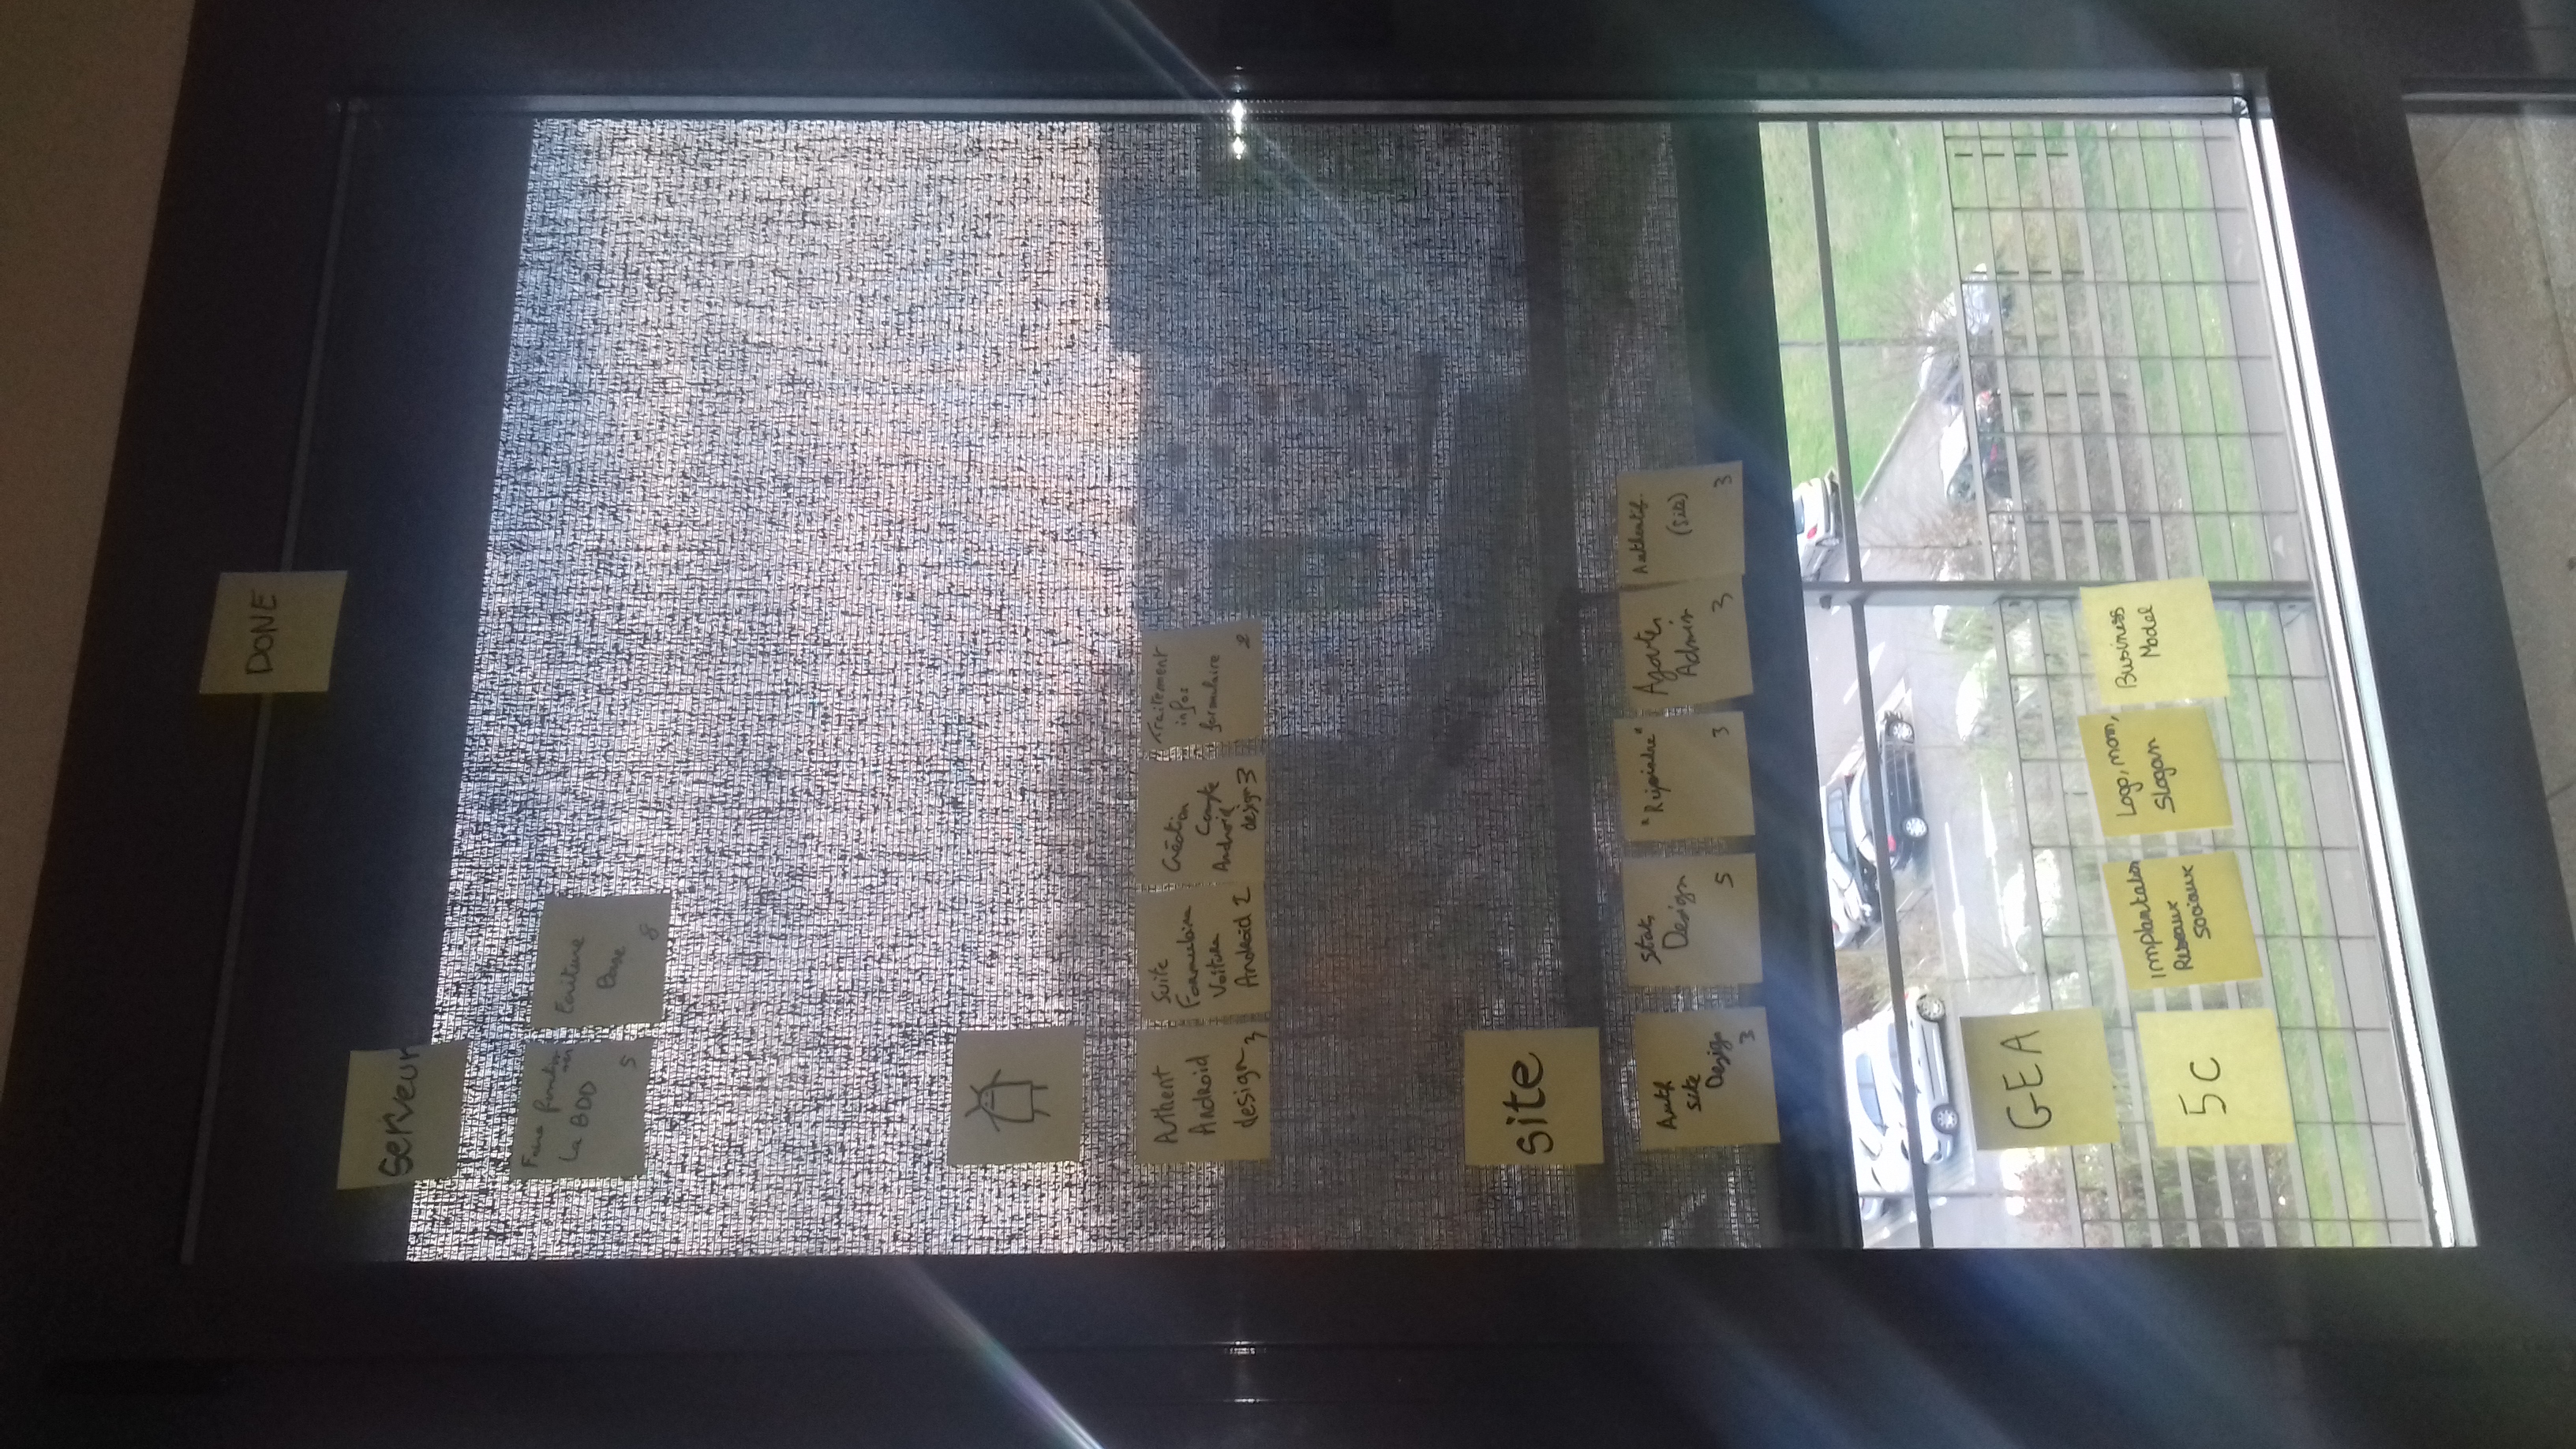 DONE
serveur
Faire fonction
ner
La BDD
5
Ecriture
Base
8
Authent
Android
design 3
Suite
Formulaire
Voiture
Android 2
Création
Compte
Android
design 3
Traitement
infos
formulaire
2
site
Auth
site
Design
3
Stats
Design
5
"Rejoindre"
3
Ajouter
Admin
3
Authentif.
(Site)
3
GEA
5c
Implantation
Réseaux
sociaux
Logo, nom,
Slogan
Business
Model